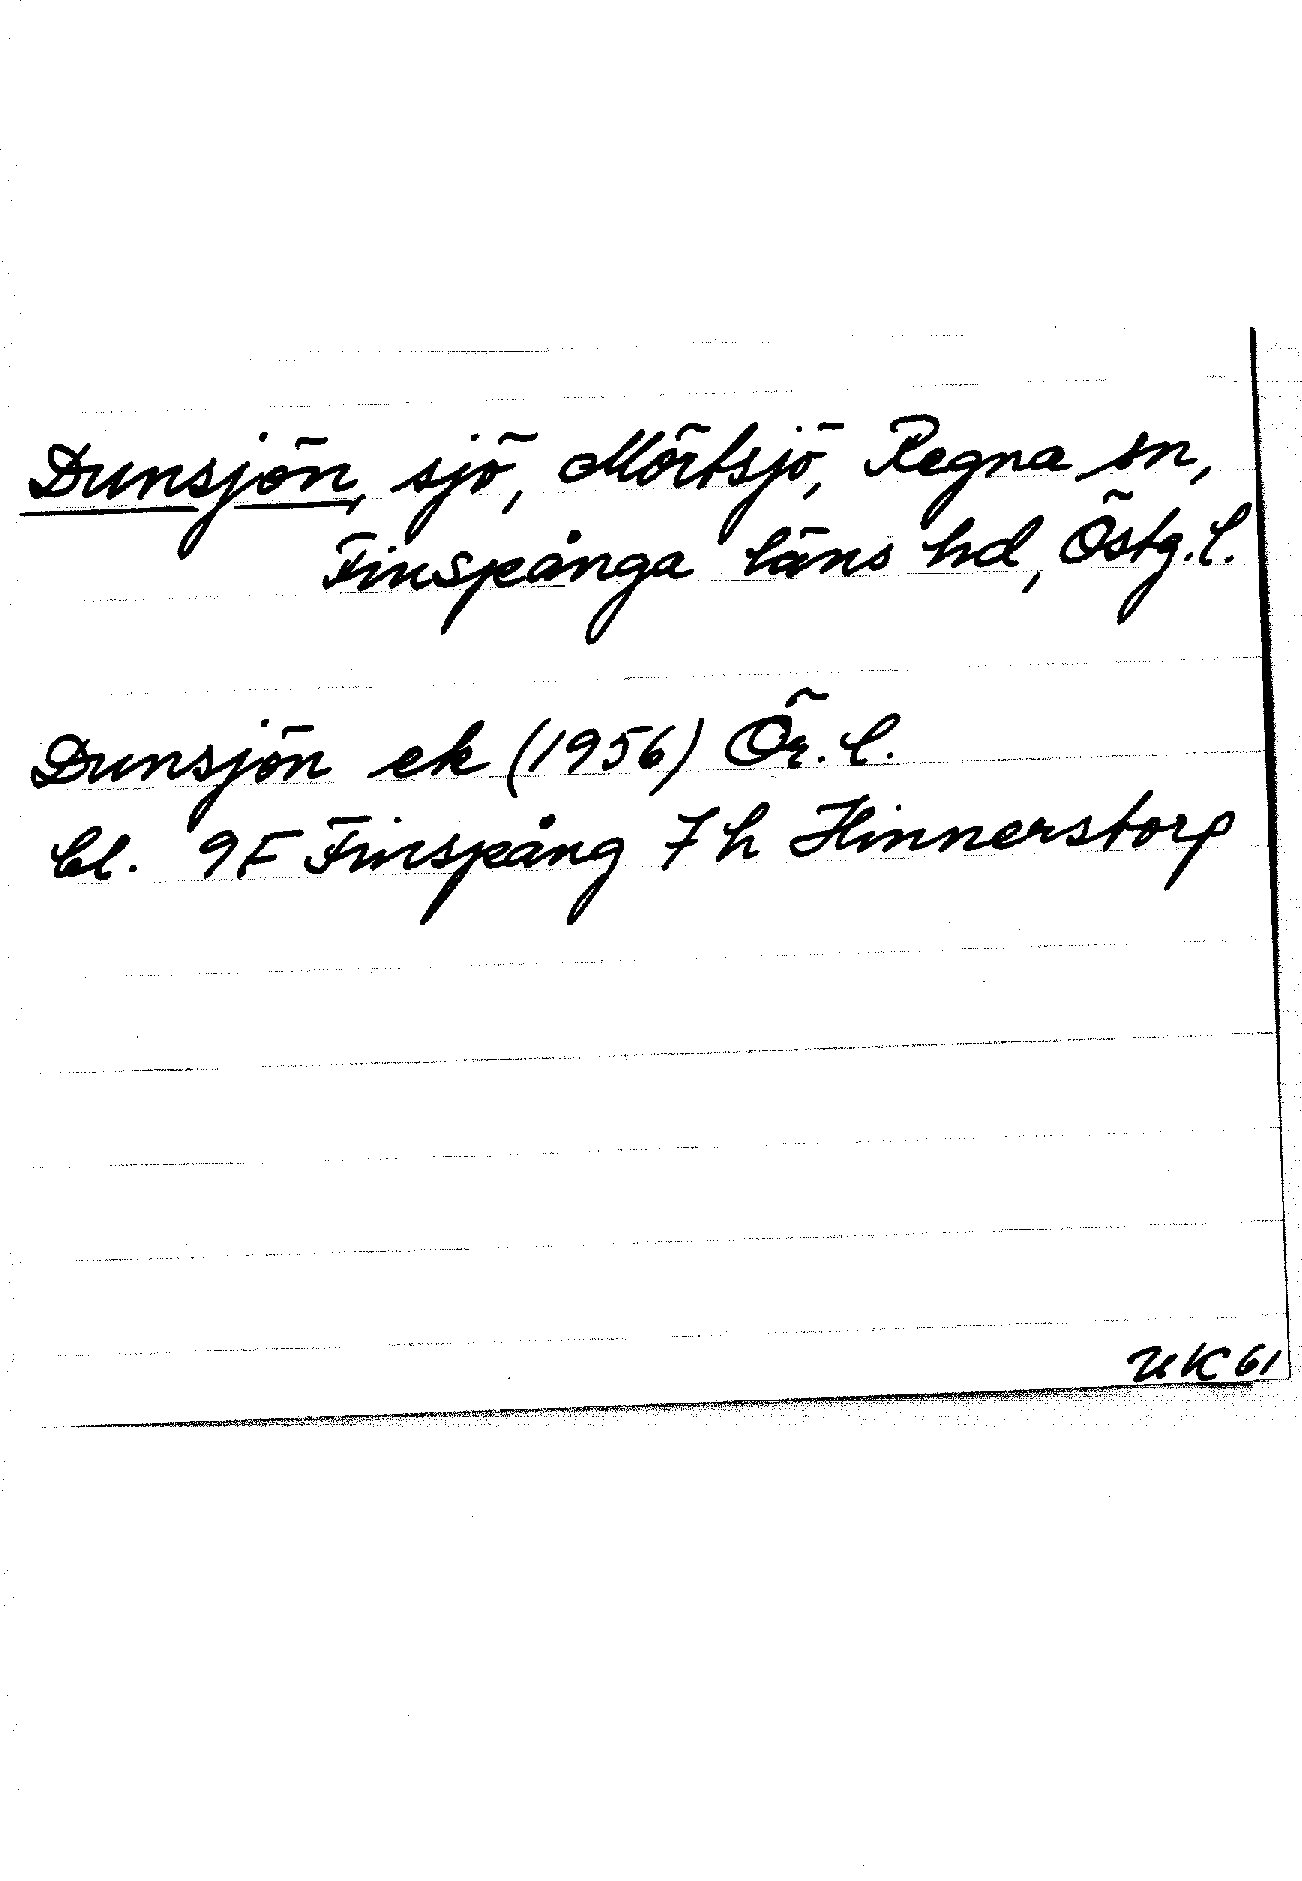 Dunsjön, sjö, Mörtsjö, Regna sn,
Finspånga läns hd, Östg.l.
Dunsjön ek (1956) Ör. l.
bl. 9F Finspång 7h Hinnerstorp
UK 61